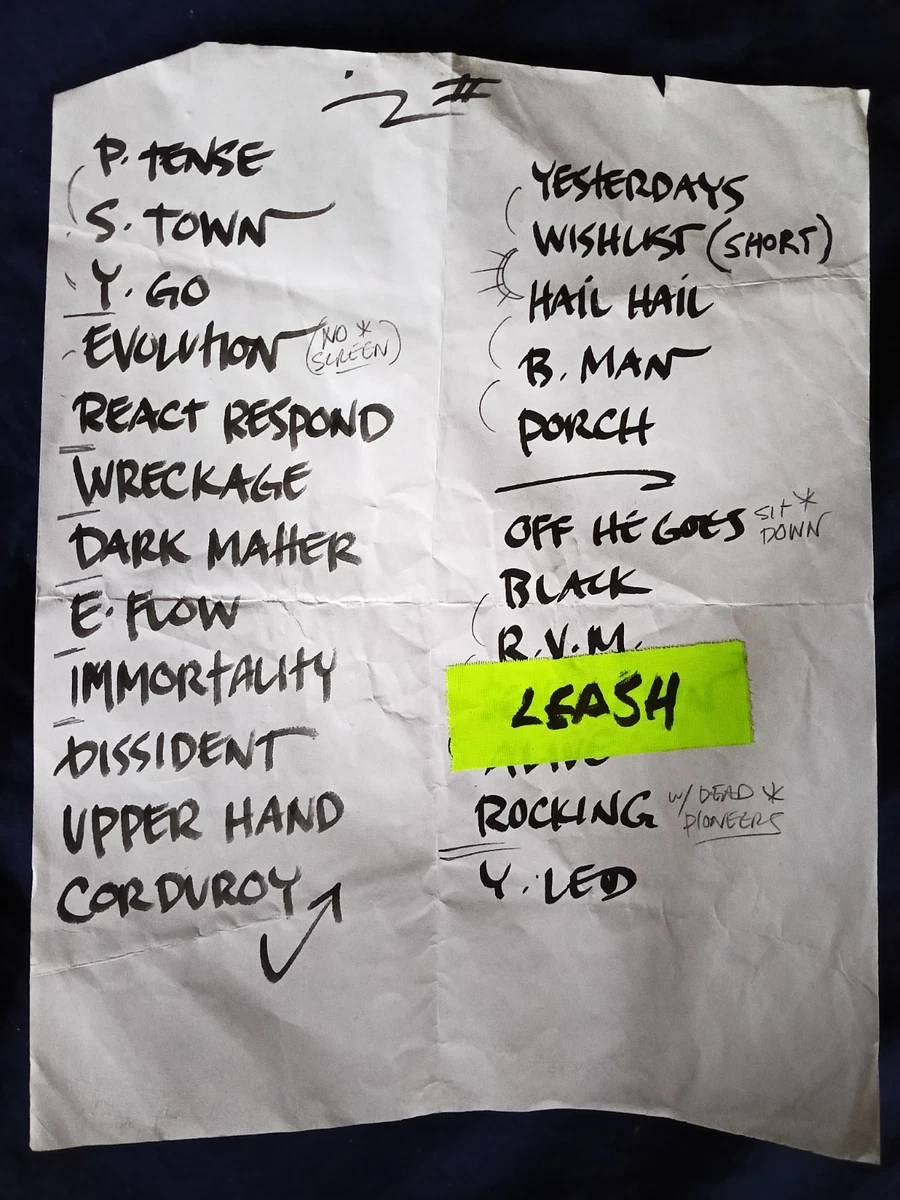 P. TENSE
S. TOWN
Y. GO
EVOLUTION (NO *
SCREEN)
REACT RESPOND
WRECKAGE
DARK MATTER
E. FLOW
IMMORTALITY
DISSIDENT
UPPER HAND
CORDUROY
YESTERDAYS
WISHLIST (SHORT)
HAIL HAIL
B. MAN
PORCH
OFF HE GOES SIT *
DOWN
BLACK
R.V.M.
LEASH
ROCKING W/ DEAD *
PIONEERS
Y. LED